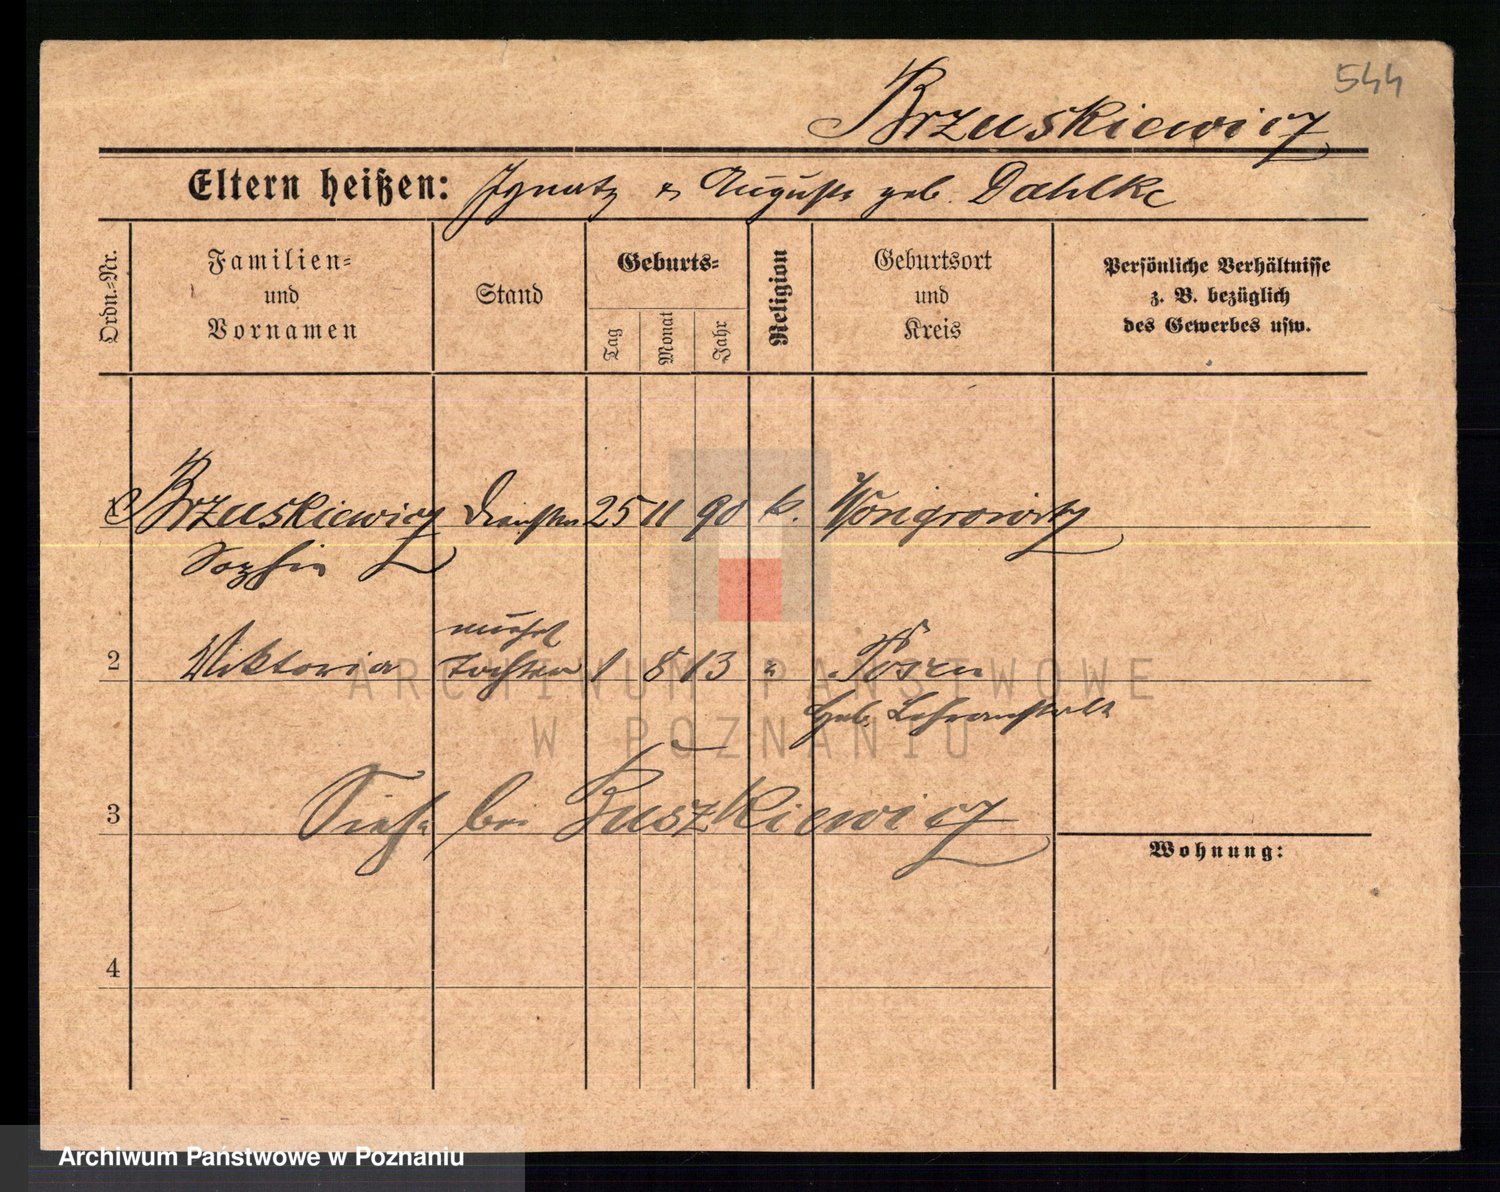 544
Brzuskiewicz
Eltern heißen: Ignatz & Auguste geb. Dahlke
Ordn.-Nr.
Familien- und Vornamen
Stand
Geburts-
Tag
Monat
Jahr
Religion
Geburtsort und Kreis
Persönliche Verhältnisse z. B. bezüglich des Gewerbes usw.
Brzuskiewicz 25 11 90 k. Wongrowitz
Sophie
unehel
2 Viktoria Tochter 1 8 13 " Posen
Heb. Lehranstalt
3 Siehe bei Buszkiewicz
Wohnung:
4
ARCHIWUM PAŃSTWOWE
W POZNANIU
Archiwum Państwowe w Poznaniu